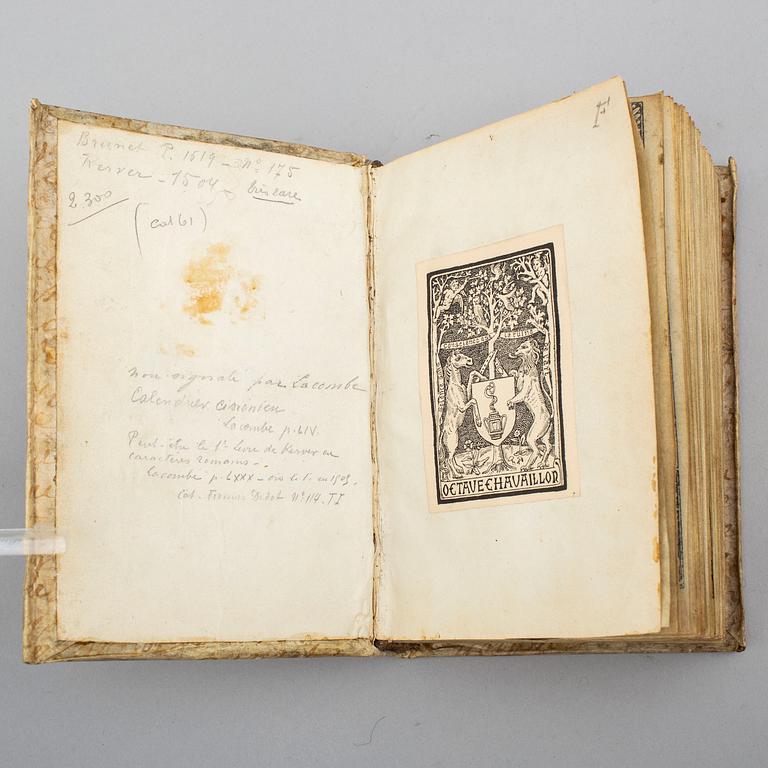 Brunet P. 1619 - N° 175
Kerver - 1504 - très rare
2.300
(cat 61)
non signalé par Lacombe
Calendrier
Lacombe p. LIV.
Peut-être le 1er livre de Kerver en
caractères romains -
Lacombe p. LXXX - en 1505.
Cat. Firmin Didot N° 114. TI
OCTAVE CHAVAILLON